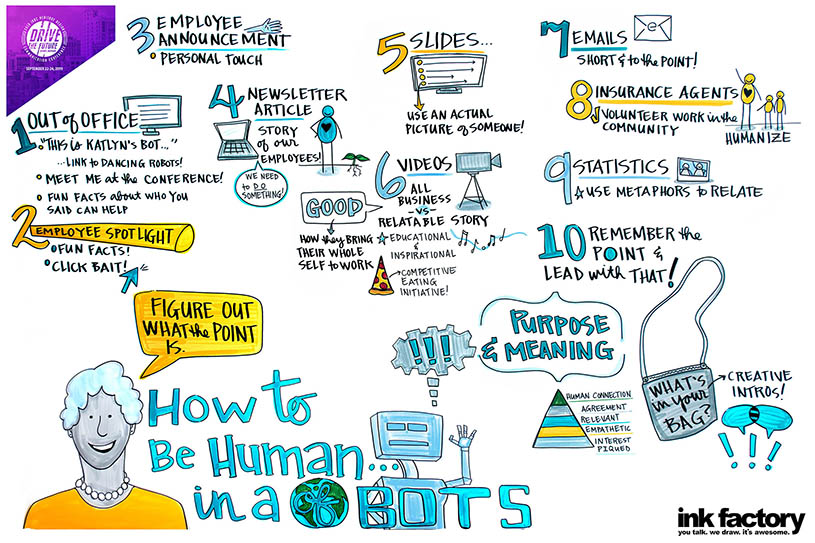 DRIVE
THE FUTURE
SEPTEMBER 22-24, 2019
1 OUT OF OFFICE
"THIS is KATLYN'S BOT..."
...LINK to DANCING ROBOTS!
MEET ME at the CONFERENCE!
FUN FACTS about WHO YOU
SAID CAN HELP
2 EMPLOYEE SPOTLIGHT
FUN FACTS!
CLICK BAIT!
3 EMPLOYEE
ANNOUNCEMENT
PERSONAL TOUCH
4 NEWSLETTER
ARTICLE
STORY
of OUR
EMPLOYEES!
WE NEED
to DO
SOMETHING!
5 SLIDES...
USE AN ACTUAL
PICTURE of SOMEONE!
6 VIDEOS
ALL
BUSINESS
-VS-
RELATABLE STORY
GOOD
HOW they BRING
THEIR WHOLE
SELF to WORK
EDUCATIONAL &
INSPIRATIONAL
COMPETITIVE
EATING
INITIATIVE!
7 EMAILS
e
SHORT & to the POINT!
8 INSURANCE AGENTS
VOLUNTEER WORK in the
COMMUNITY
HUMANIZE
9 STATISTICS
USE METAPHORS to RELATE
10 REMEMBER the
POINT &
LEAD with THAT!
FIGURE OUT
WHAT the POINT
IS.
HOW to
Be Human...
in a
BOTS
!!!
PURPOSE
& MEANING
HUMAN CONNECTION
AGREEMENT
RELEVANT
EMPATHETIC
INTEREST
PIQUED
WHAT'S
in YOUR
BAG?
CREATIVE
INTROS!
!!!
ink factory
you talk. we draw. it's awesome.